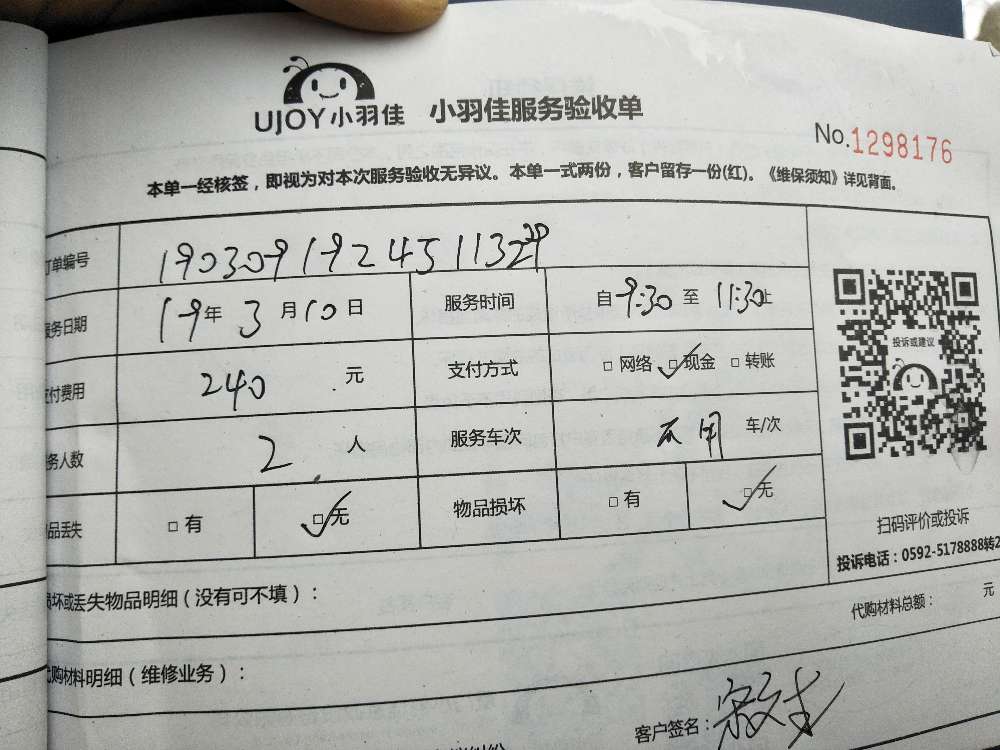 UJOY小羽佳 小羽佳服务验收单
No.1298176
本单一经核签，即视为对本次服务验收无异议。本单一式两份，客户留存一份(红)。《维保须知》详见背面。
订单编号 19030919245113229
服务日期 19年 3月10日 服务时间 自9:30至11:30止
支付费用 240 元 支付方式 □网络 ☑现金 □转账
务人数 2 人 服务车次 不用 车/次
品丢失 □有 ☑无 物品损坏 □有 ☑无
投诉或建议
扫码评价或投诉
投诉电话：0592-5178888转2
损坏或丢失物品明细（没有可不填）：
代购材料总额： 元
代购材料明细（维修业务）：
客户签名：